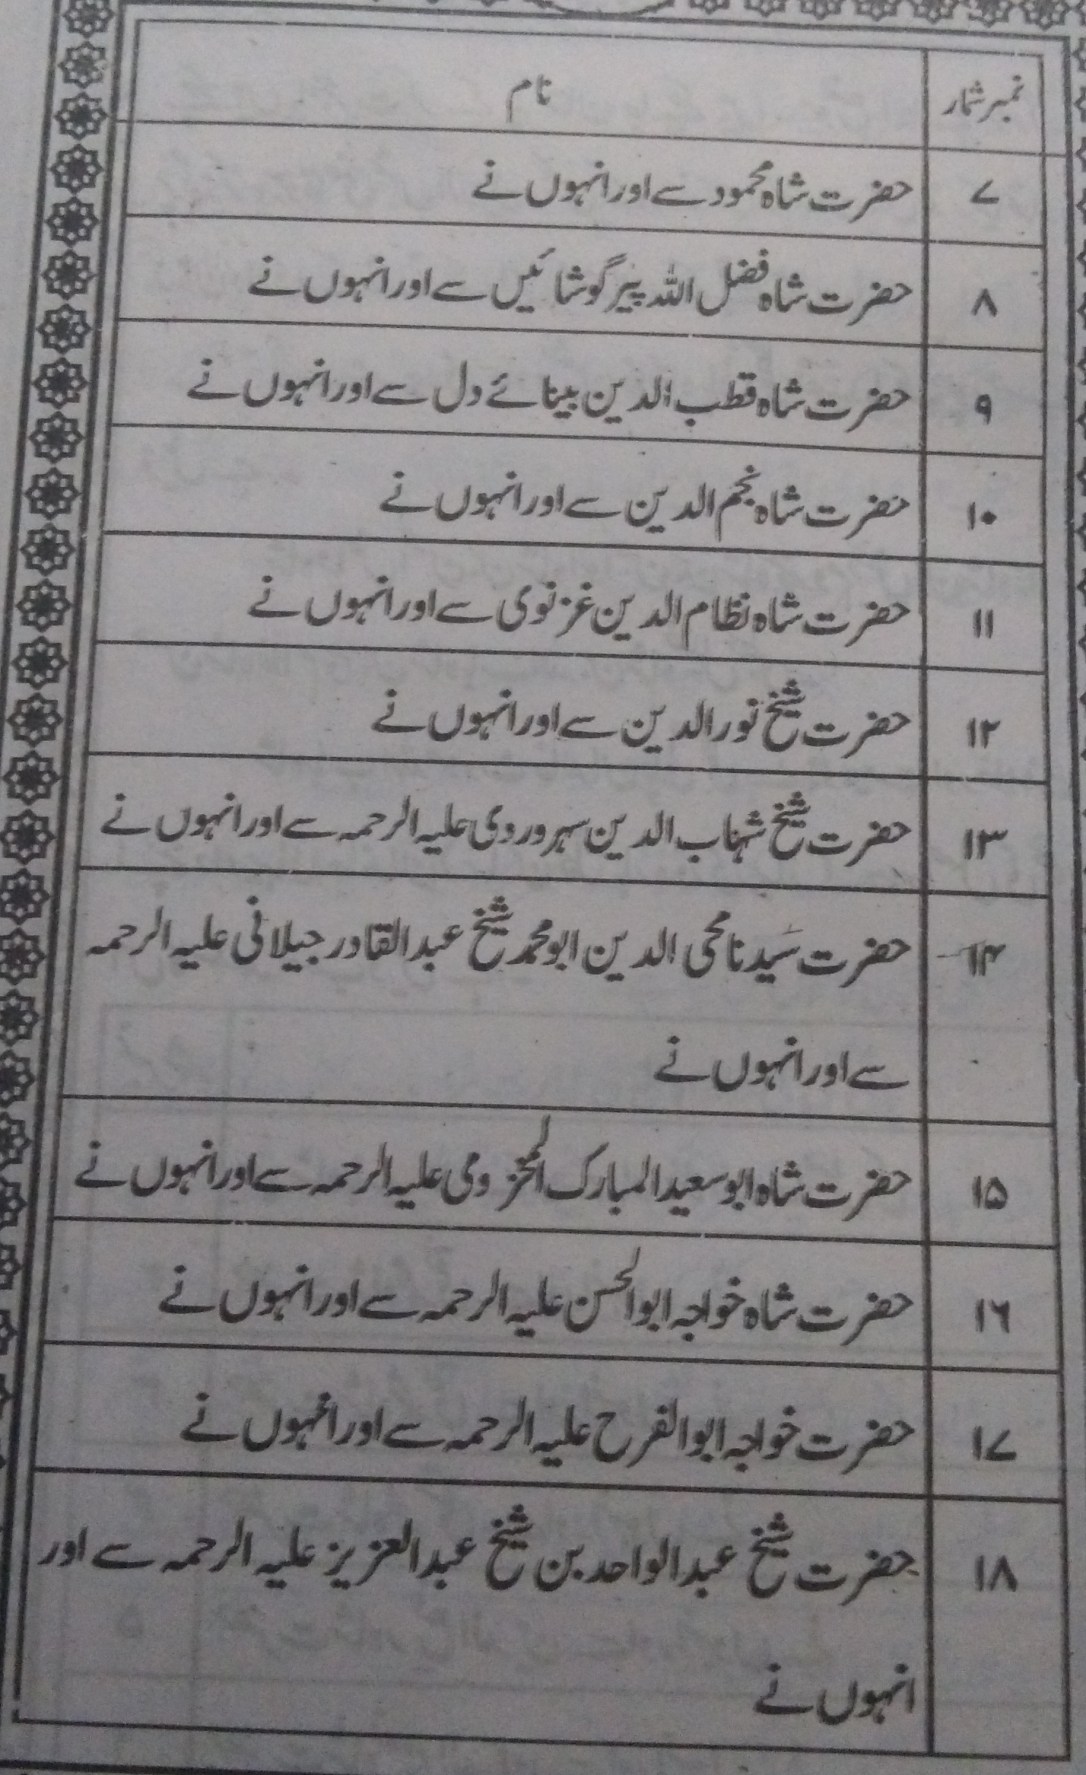 نمبر شمار نام
۷ حضرت شاہ محمود سے اور انہوں نے
۸ حضرت شاہ فضل اللہ پیر گوشائیں سے اور انہوں نے
۹ حضرت شاہ قطب الدین بینائے دل سے اور انہوں نے
۱۰ حضرت شاہ نجم الدین سے اور انہوں نے
۱۱ حضرت شاہ نظام الدین غزنوی سے اور انہوں نے
۱۲ حضرت شیخ نور الدین سے اور انہوں نے
۱۳ حضرت شیخ شہاب الدین سہروردی علیہ الرحمہ سے اور انہوں نے
۱۴ حضرت سَیدنا محی الدین ابو محمد شیخ عبد القادر جیلانی علیہ الرحمہ
سے اور انہوں نے
۱۵ حضرت شاہ ابو سعید المبارک المخزومی علیہ الرحمہ سے اور انہوں نے
۱۶ حضرت شاہ خواجہ ابو الحسن علیہ الرحمہ سے اور انہوں نے
۱۷ حضرت خواجہ ابو الفرح علیہ الرحمہ سے اور انہوں نے
۱۸ حضرت شیخ عبد الواحد بن شیخ عبد العزیز علیہ الرحمہ سے اور
انہوں نے